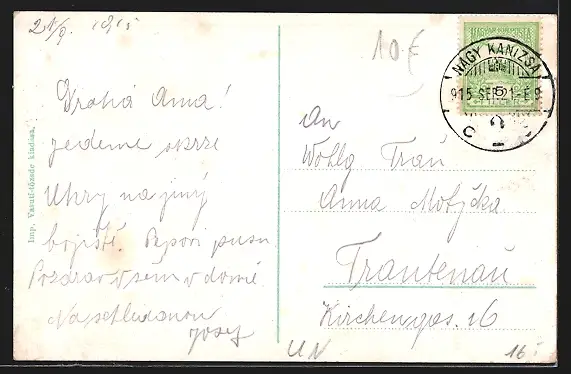 21/9. 1915
Drahá Anna!
jedeme skrze
Uhry na jiný
bojiště. Popovi pusu
Pozdrav všem v domě
Na shledanou
Josef
Imp. Vasuti-tőzsde kiadása.
10 €
NAGY KANIZSA
915 SEP 21
An
Wohlg Frau
Anna Motyčka
Trautenau
Kirchengas. 16
UN
16